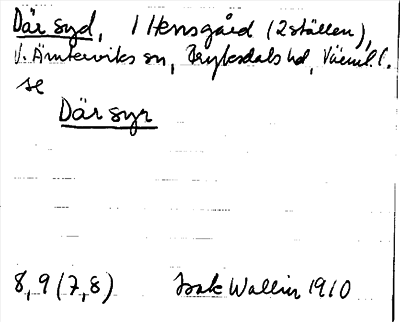 Där syd, 1 Hensgård (2 ställen),
V. Ämterviks sn, Fryksdals hd, Värml. l.
se
Där syr
8, 9 (7, 8) Isak Wallin 1910